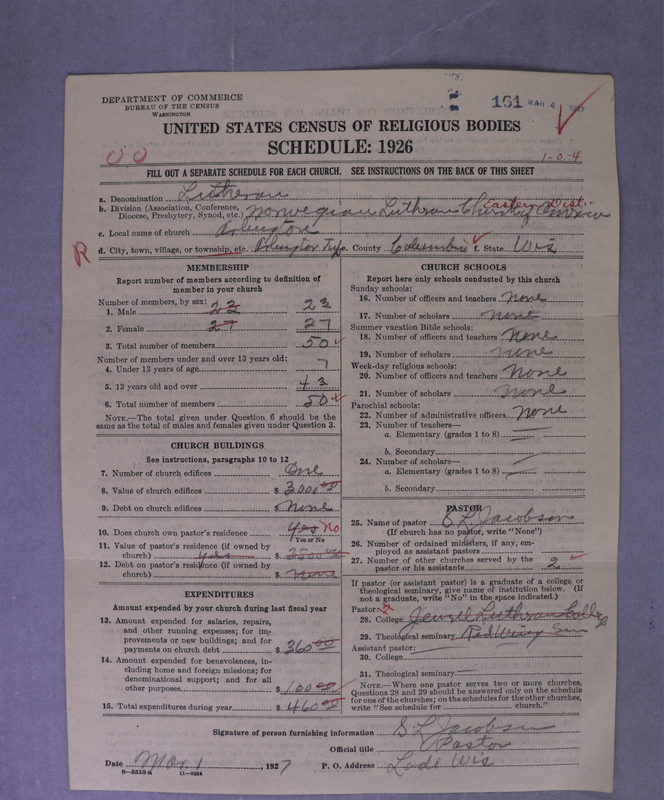 DEPARTMENT OF COMMERCE
BUREAU OF THE CENSUS
WASHINGTON
161 MAR 4
UNITED STATES CENSUS OF RELIGIOUS BODIES
SCHEDULE: 1926
00
1-0-4
FILL OUT A SEPARATE SCHEDULE FOR EACH CHURCH. SEE INSTRUCTIONS ON THE BACK OF THIS SHEET
a. Denomination Lutheran
b. Division (Association, Conference, Diocese, Presbytery, Synod, etc.) Norwegian Lutheran Church Eastern Dist.
c. Local name of church Arlington
R
d. City, town, village, or township, etc. Arlington Twp e. County Columbia f. State Wis
MEMBERSHIP
Report number of members according to definition of
member in your church
Number of members, by sex:
1. Male 23 23
2. Female 27 27
3. Total number of members 50
Number of members under and over 13 years old:
4. Under 13 years of age 7
5. 13 years old and over 43
6. Total number of members 50
NOTE.—The total given under Question 6 should be the
same as the total of males and females given under Question 3.
CHURCH BUILDINGS
See instructions, paragraphs 10 to 12
7. Number of church edifices One
8. Value of church edifices $ 3000.00
9. Debt on church edifices $ None
10. Does church own pastor's residence Yes No
Yes or No
11. Value of pastor's residence (if owned by
church) yes $ 3500.00
12. Debt on pastor's residence (if owned by
church) $ None
EXPENDITURES
Amount expended by your church during last fiscal year
13. Amount expended for salaries, repairs,
and other running expenses; for im-
provements or new buildings; and for
payments on church debt $ 360.00
14. Amount expended for benevolences, in-
cluding home and foreign missions; for
denominational support; and for all
other purposes $ 100.00
15. Total expenditures during year $ 460.00
CHURCH SCHOOLS
Report here only schools conducted by this church
Sunday schools:
16. Number of officers and teachers None
17. Number of scholars None
Summer vacation Bible schools:
18. Number of officers and teachers None
19. Number of scholars None
Week-day religious schools:
20. Number of officers and teachers None
21. Number of scholars None
Parochial schools:
22. Number of administrative officers None
23. Number of teachers—
a. Elementary (grades 1 to 8)
b. Secondary
24. Number of scholars—
a. Elementary (grades 1 to 8)
b. Secondary
PASTOR
25. Name of pastor S L Jacobson
(If church has no pastor, write "None")
26. Number of ordained ministers, if any, em-
ployed as assistant pastors
27. Number of other churches served by the
pastor or his assistants 2
If pastor (or assistant pastor) is a graduate of a college or
theological seminary, give name of institution below. (If
not a graduate, write "No" in the space indicated.)
Pastor:
28. College Jewell Luthran College
29. Theological seminary Red Wing Sem
Assistant pastor:
30. College
31. Theological seminary
NOTE.—Where one pastor serves two or more churches,
Questions 28 and 29 should be answered only on the schedule
for one of the churches; on the schedules for the other churches,
write "See schedule for church."
Signature of person furnishing information S L Jacobson
Official title Pastor
Date Mar 1, 1927 P. O. Address Lodi Wis
8—5313a 11—9034